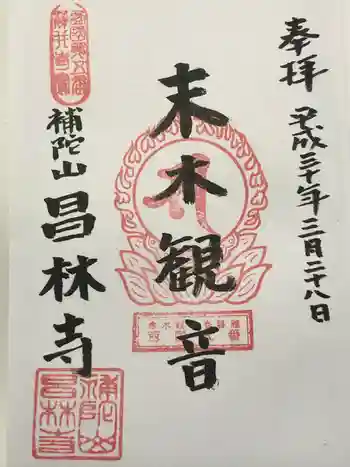 奉拝
平成三十年三月二十八日
末木観音
補陀山
昌林寺
補陀山
昌林寺